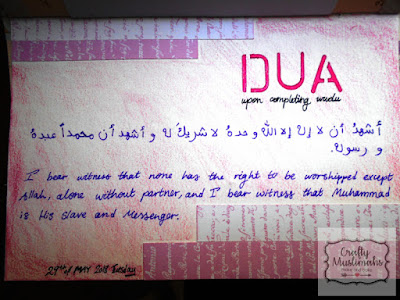 DUA
upon completing wudu
أشهدُ أن لا إلٰه إلا اللهُ وحدهُ لا شريكَ له و أشهد أن محمداً عبدهُ
و رسوله.
I bear witness that none has the right to be worshipped except
Allah, alone without partner, and I bear witness that Muhammad
is His Slave and Messenger.
29th of MAY 2018 Tuesday
Crafty
Muslimahs